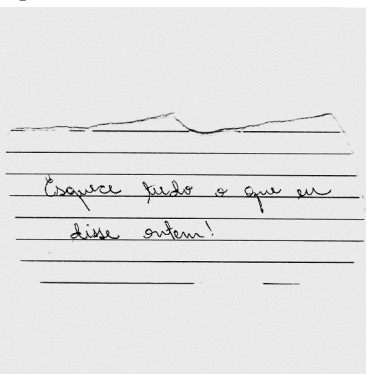 Esquece tudo o que eu
disse ontem!